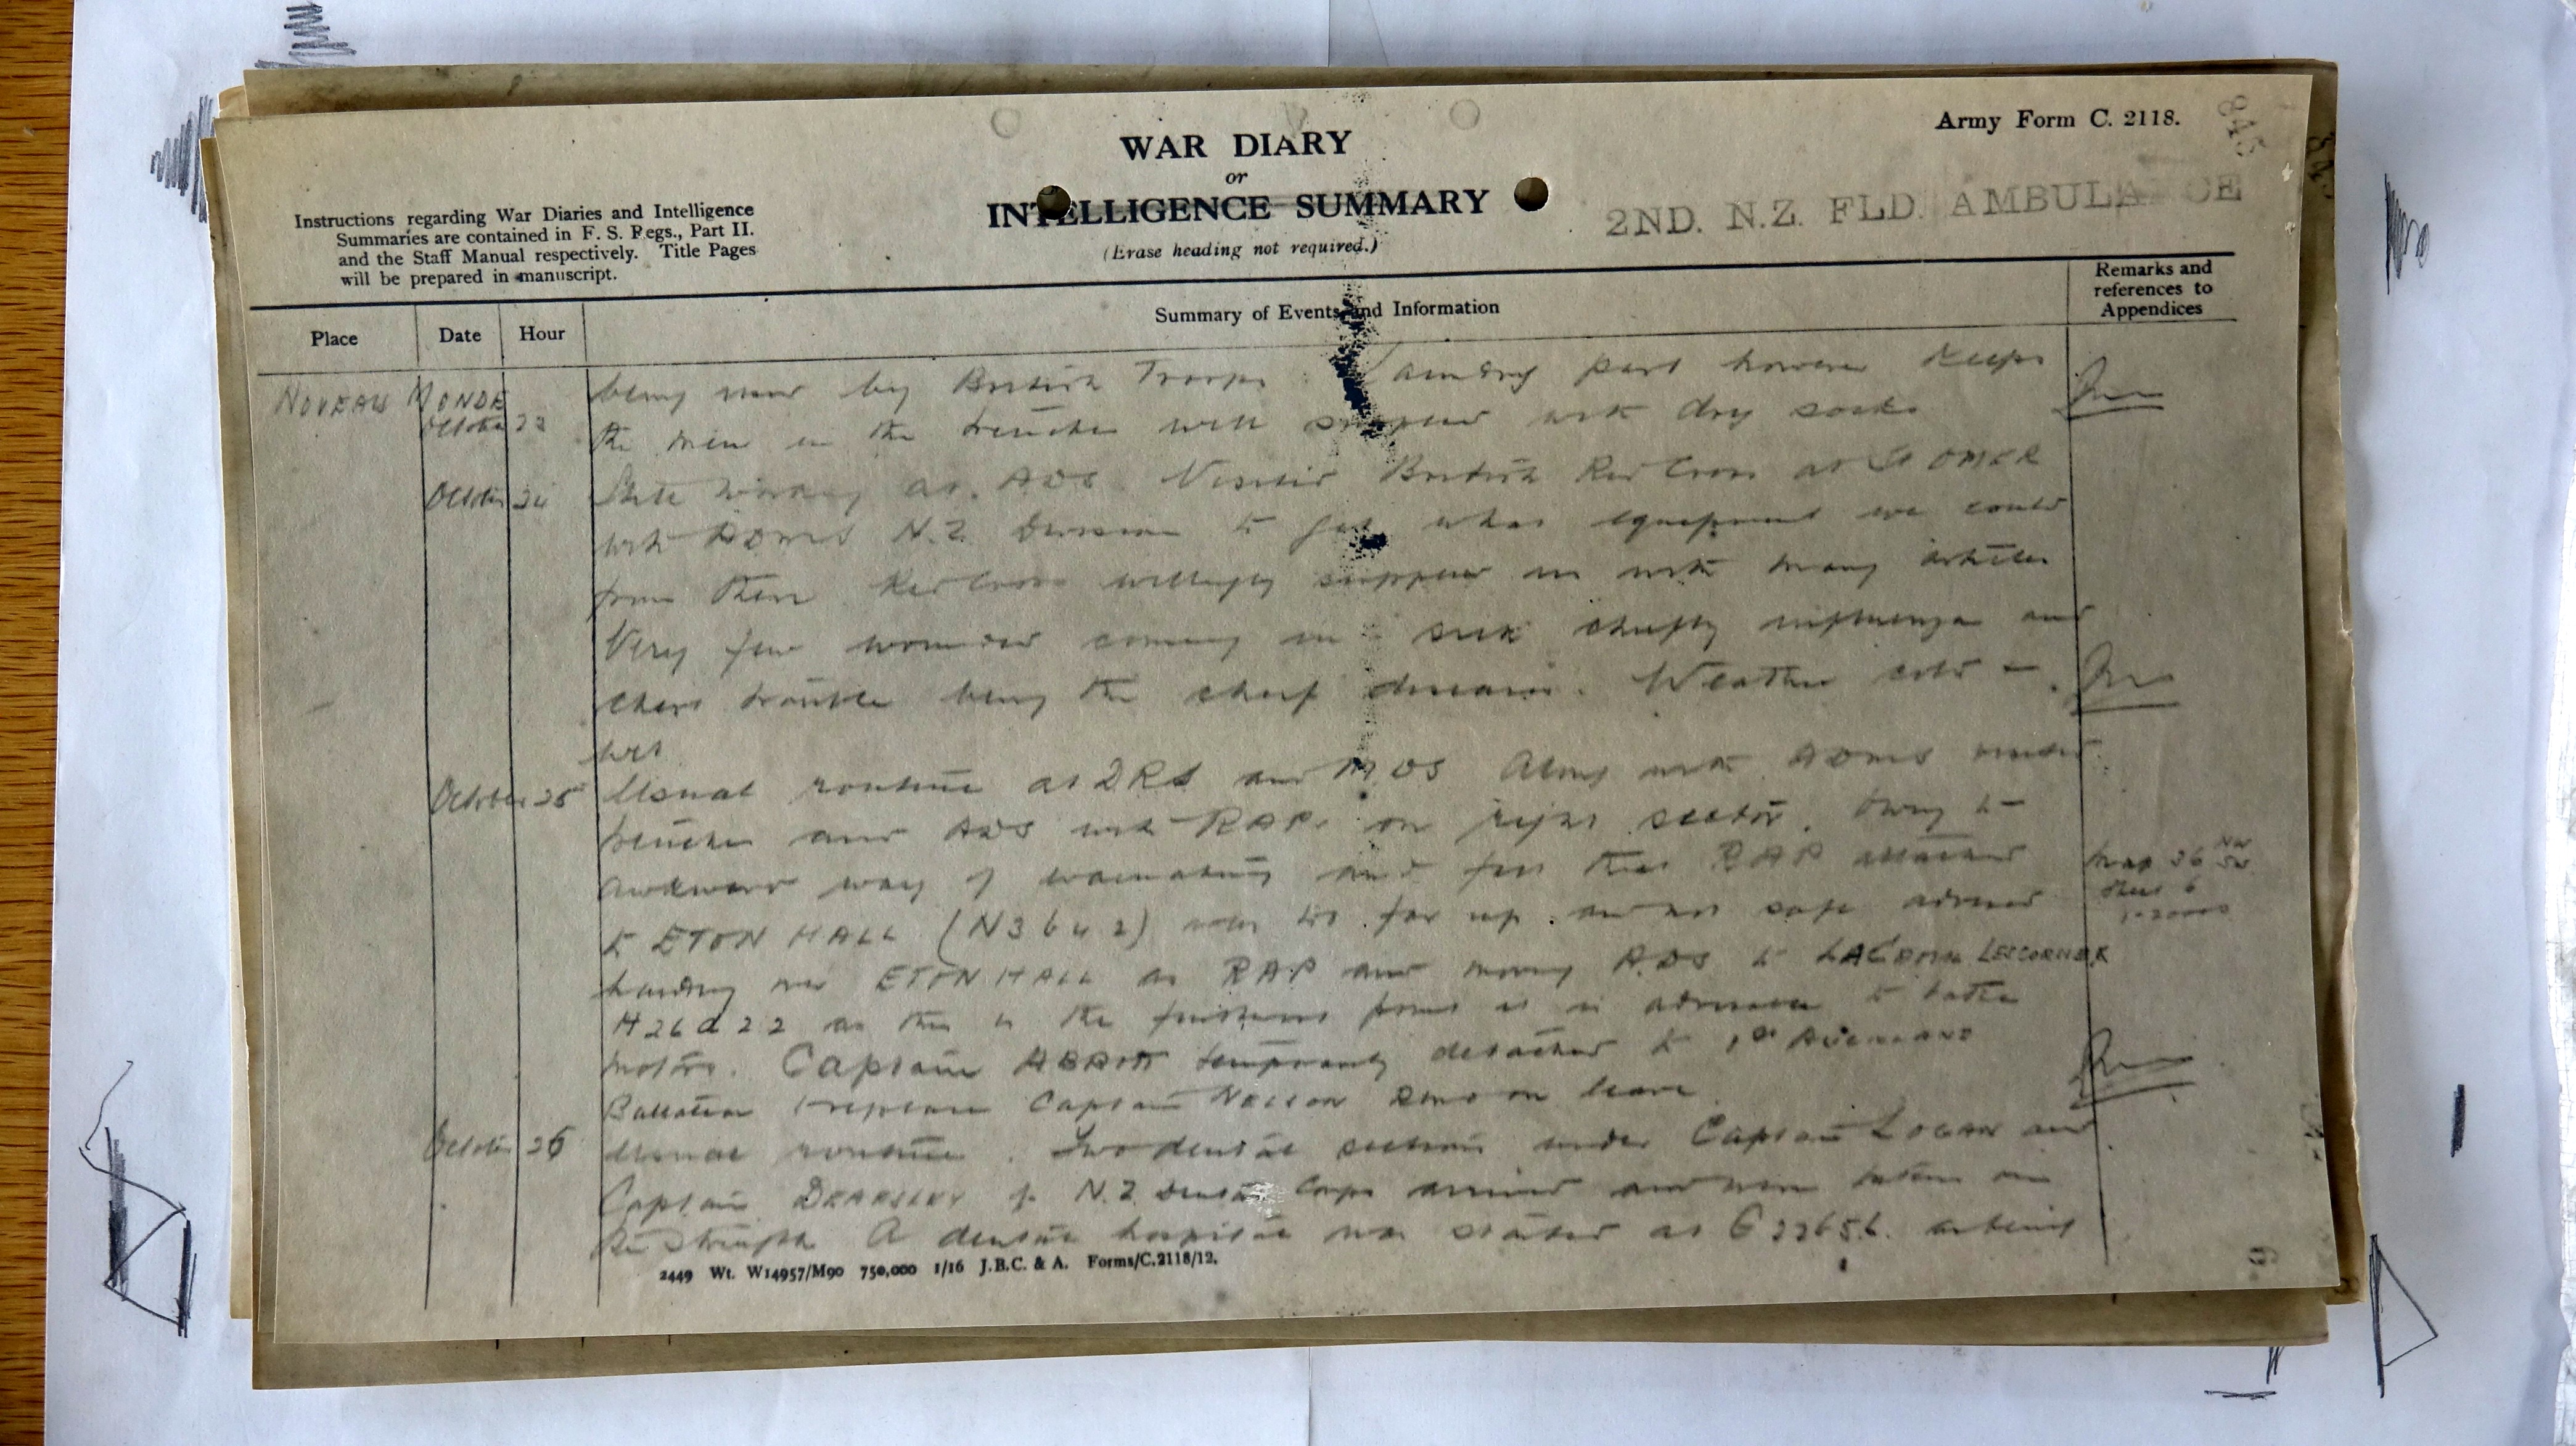 Army Form C. 2118.
845
WAR DIARY
or
INTELLIGENCE SUMMARY
(Erase heading not required.)
2ND. N.Z. FLD. AMBULA CE
Instructions regarding War Diaries and Intelligence
Summaries are contained in F. S. Regs., Part II.
and the Staff Manual respectively. Title Pages
will be prepared in manuscript.
Place
Date
Hour
Summary of Events and Information
Remarks and
references to
Appendices
NOVEAU MONDE
October 23
being used by British Troops. Laundry part however keeps
the men in the trenches well supplied with dry socks
October 24
Still working at ADS. Visited British Red Cross at St OMER
with ADMS N.Z. Division to get what equipment we could
from them Red Cross willingly supplied us with many articles
Very few wounded coming in sick chiefly influenza and
chest trouble being the chief diseases. Weather cold
wet
October 25
Usual routine at DRS and MDS Along with ADMS visited
trenches and ADS and RAPs on right sector. Owing to
awkward way of evacuating and that RAP attached
to ETON HALL (N3b42) was too far up and not safe advised
handing over ETON HALL as RAP and moving ADS to
H26d22 as this is the furthest point in advance to
motors. Captain ABBOTT temporarily detached to 1st AUCKLAND
Battalion to replace Captain on leave
Map 36 NW SW
Sheet 6
1-20000
October 26
Usual routine. Two dental sections under Captain LOGAN and
Captain DEARSLEY of N.Z. Dental Corps arrived and were taken on
the strength A dental hospital was started at as being
2449 Wt. W14957/M90 750,000 1/16 J.B.C. & A. Forms/C.2118/12.